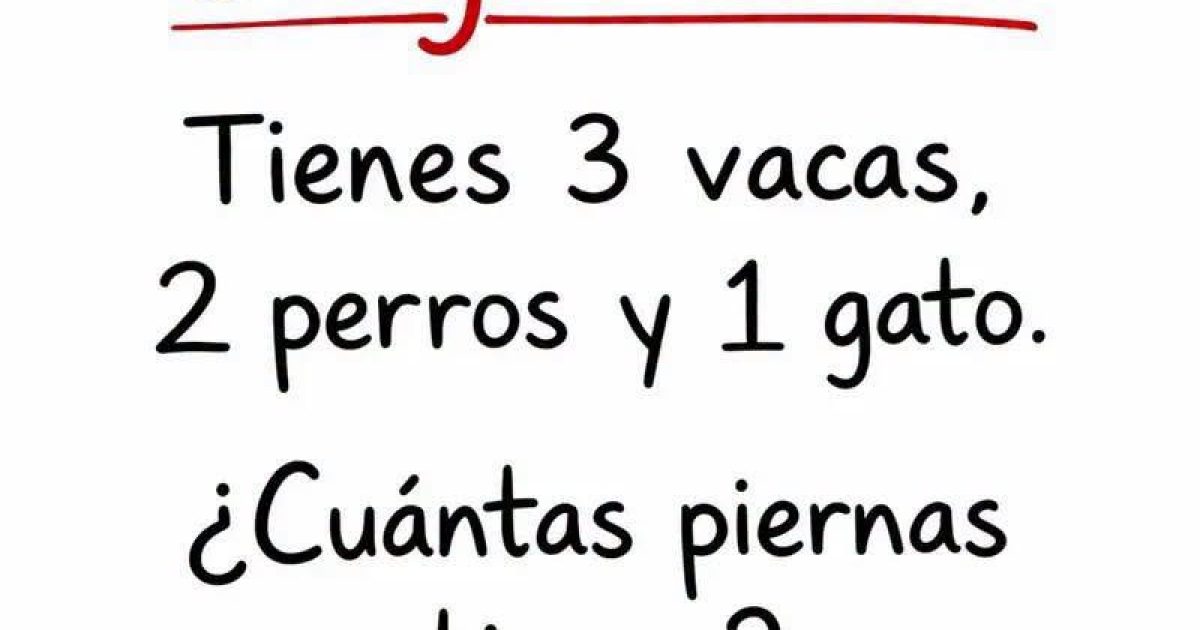 Tienes 3 vacas,
2 perros y 1 gato.
¿Cuántas piernas